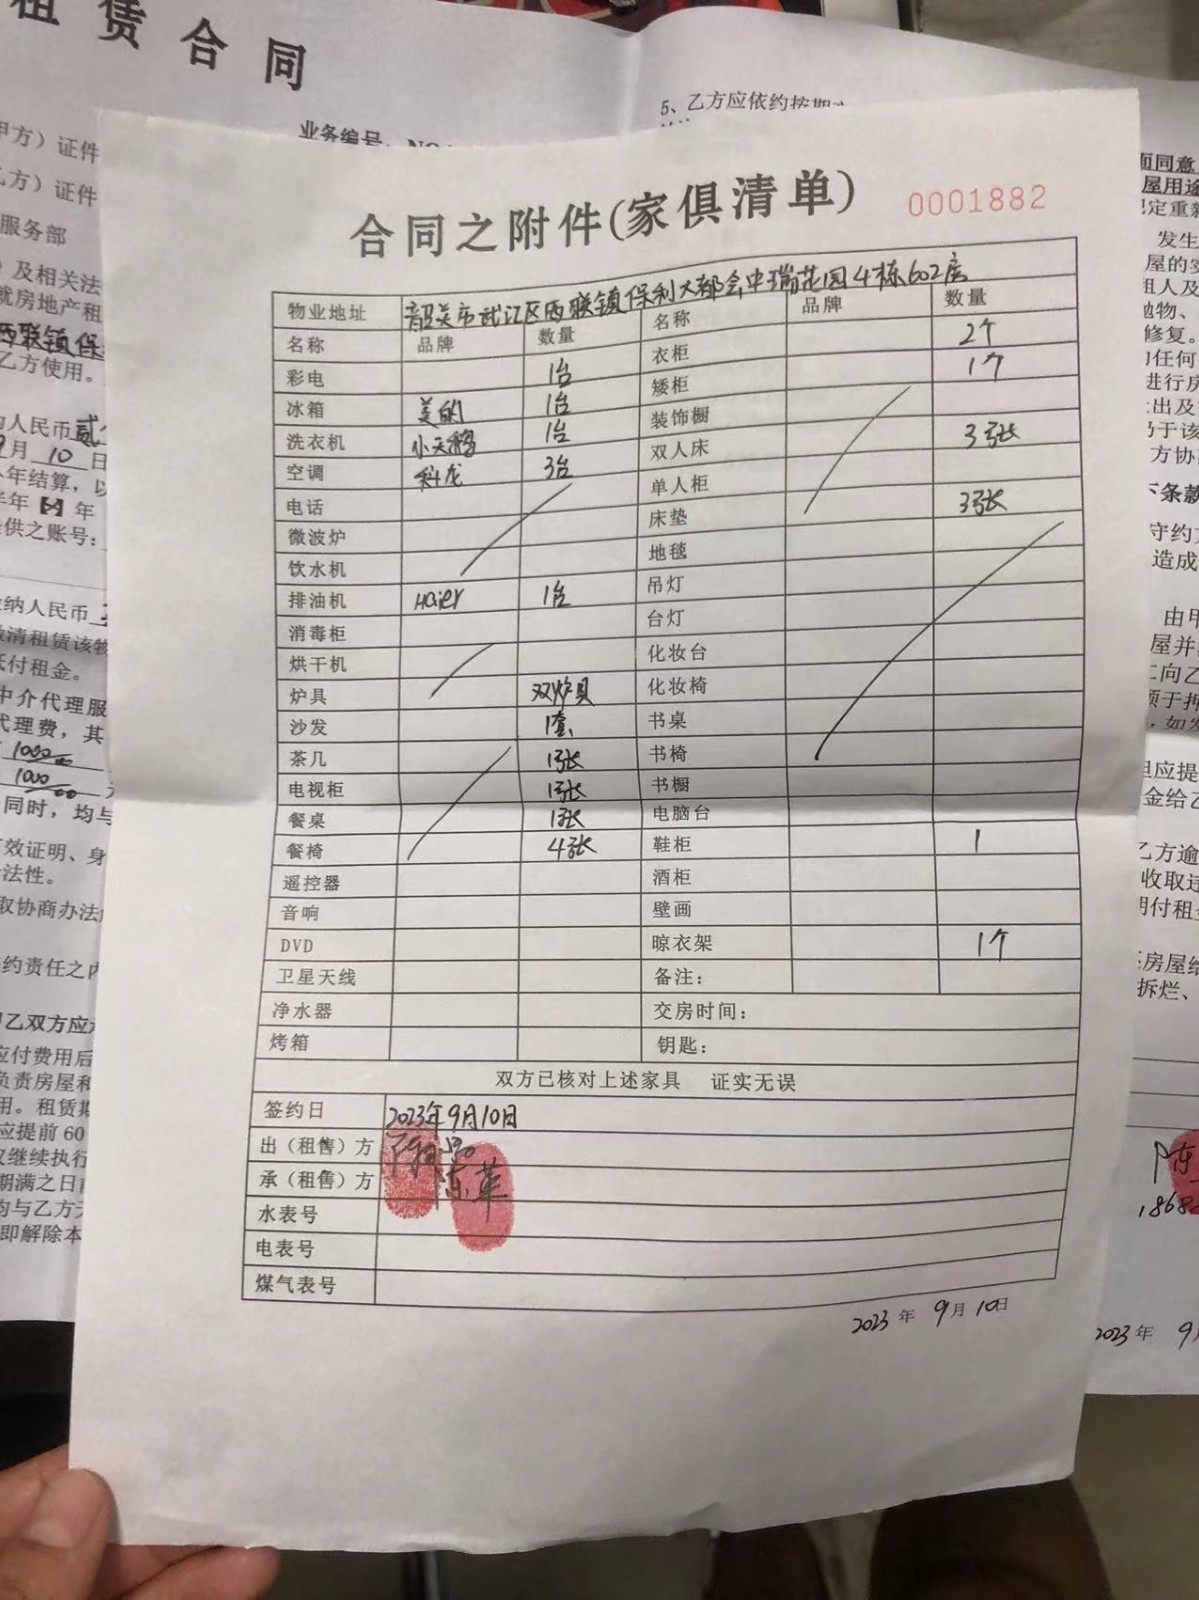 租赁合同
业务编号：
5、乙方应依约按期
甲方）证件
乙方）证件
服务部
）及相关法
就房地产租
西联镇保
乙方使用。
人民币贰
9月10日
年结算，以
半年【×】年
供之账号：
纳人民币
缴清租赁该物
抵付租金。
中介代理服
代理费，其
1000
1000.00
同时，均与
效证明、身
法性。
取协商办法
约责任之内
甲乙双方应
应付费用后
负责房屋和
用。租赁期
应提前60
继续执行
期满之日前
均与乙方
即解除本
合同之附件(家俱清单)
0001882
物业地址 韶关市武江区西联镇保利大都会中瑞花园4栋602房
名称 品牌 数量 名称 品牌 数量
彩电 1台 衣柜 2个
冰箱 美的 1台 矮柜 1个
洗衣机 小天鹅 1台 装饰橱
空调 科龙 3台 双人床 3张
电话 单人柜
微波炉 床垫 3张
饮水机 地毯
排油机 Haier 1台 吊灯
消毒柜 台灯
烘干机 化妆台
炉具 双炉具 化妆椅
沙发 1套 书桌
茶几 1张 书椅
电视柜 1张 书橱
餐桌 1张 电脑台
餐椅 4张 鞋柜 1
遥控器 酒柜
音响 壁画
DVD 晾衣架 1个
卫星天线 备注：
净水器 交房时间：
烤箱 钥匙：
双方已核对上述家具 证实无误
签约日 2023年9月10日
出（租售）方
承（租售）方 陈革
水表号
电表号
煤气表号
2023年9月10日
面同意
屋用途
定重新
发生
屋的实
租人及
抛物、
修复。
任何
进行房
出及
于该
方协
下条款
守约方
造成
由甲
屋并
向乙
须于押
，如发
但应提
金给乙
乙方逾
收取违
付租金
房屋给
拆烂、
陈
1868
2023年 9月